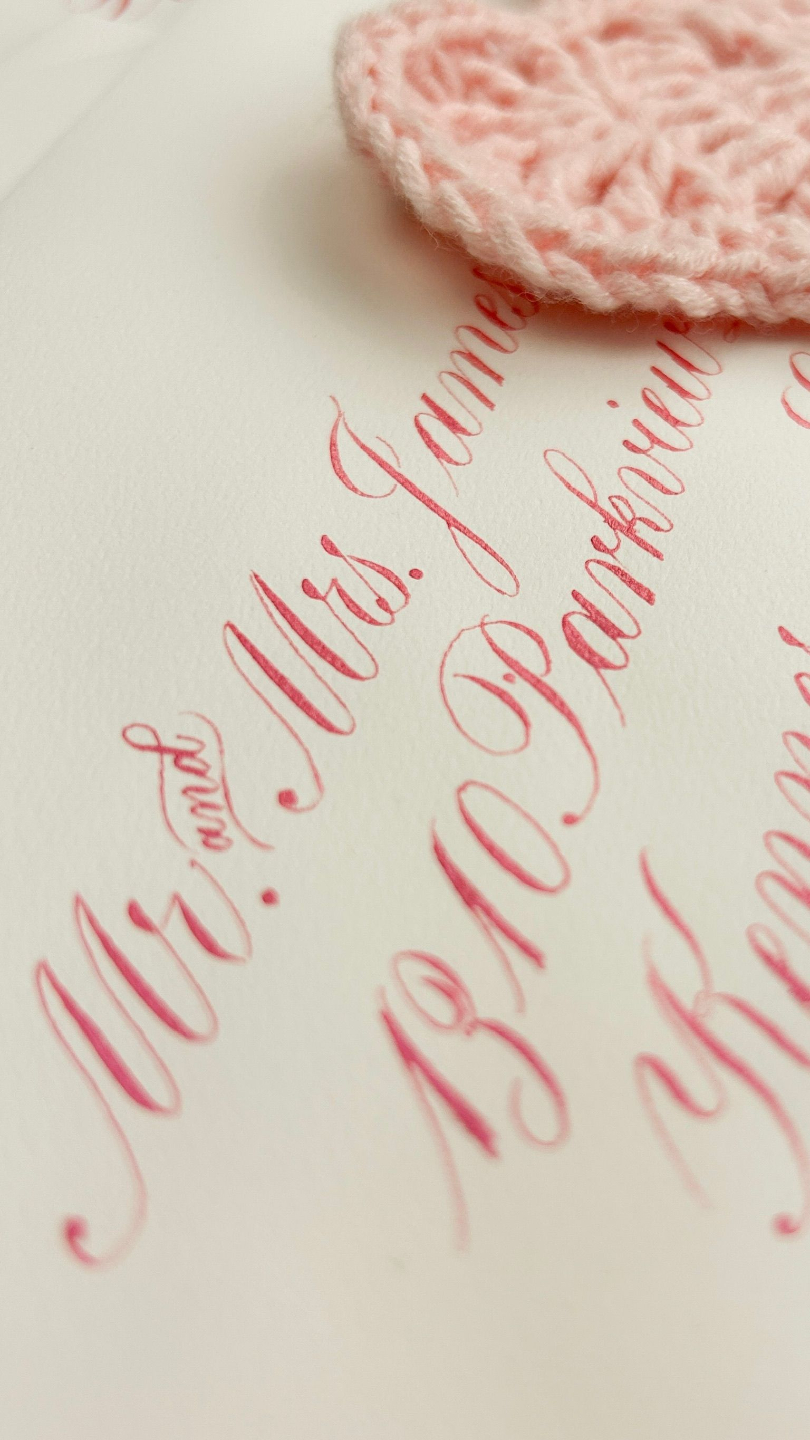 Mr. and Mrs. James
1310 Parkview